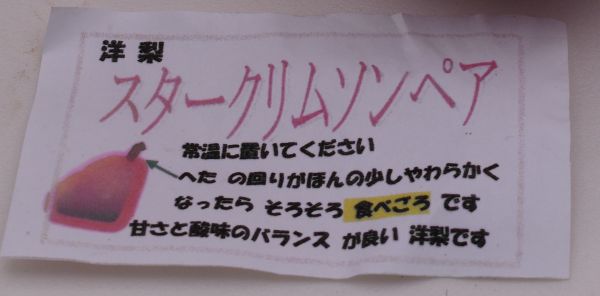 洋梨
スタークリムソンペア
常温に置いてください
へた の回りがほんの少しやわらかく
なったら そろそろ 食べごろ です
甘さと酸味のバランス が良い 洋梨です